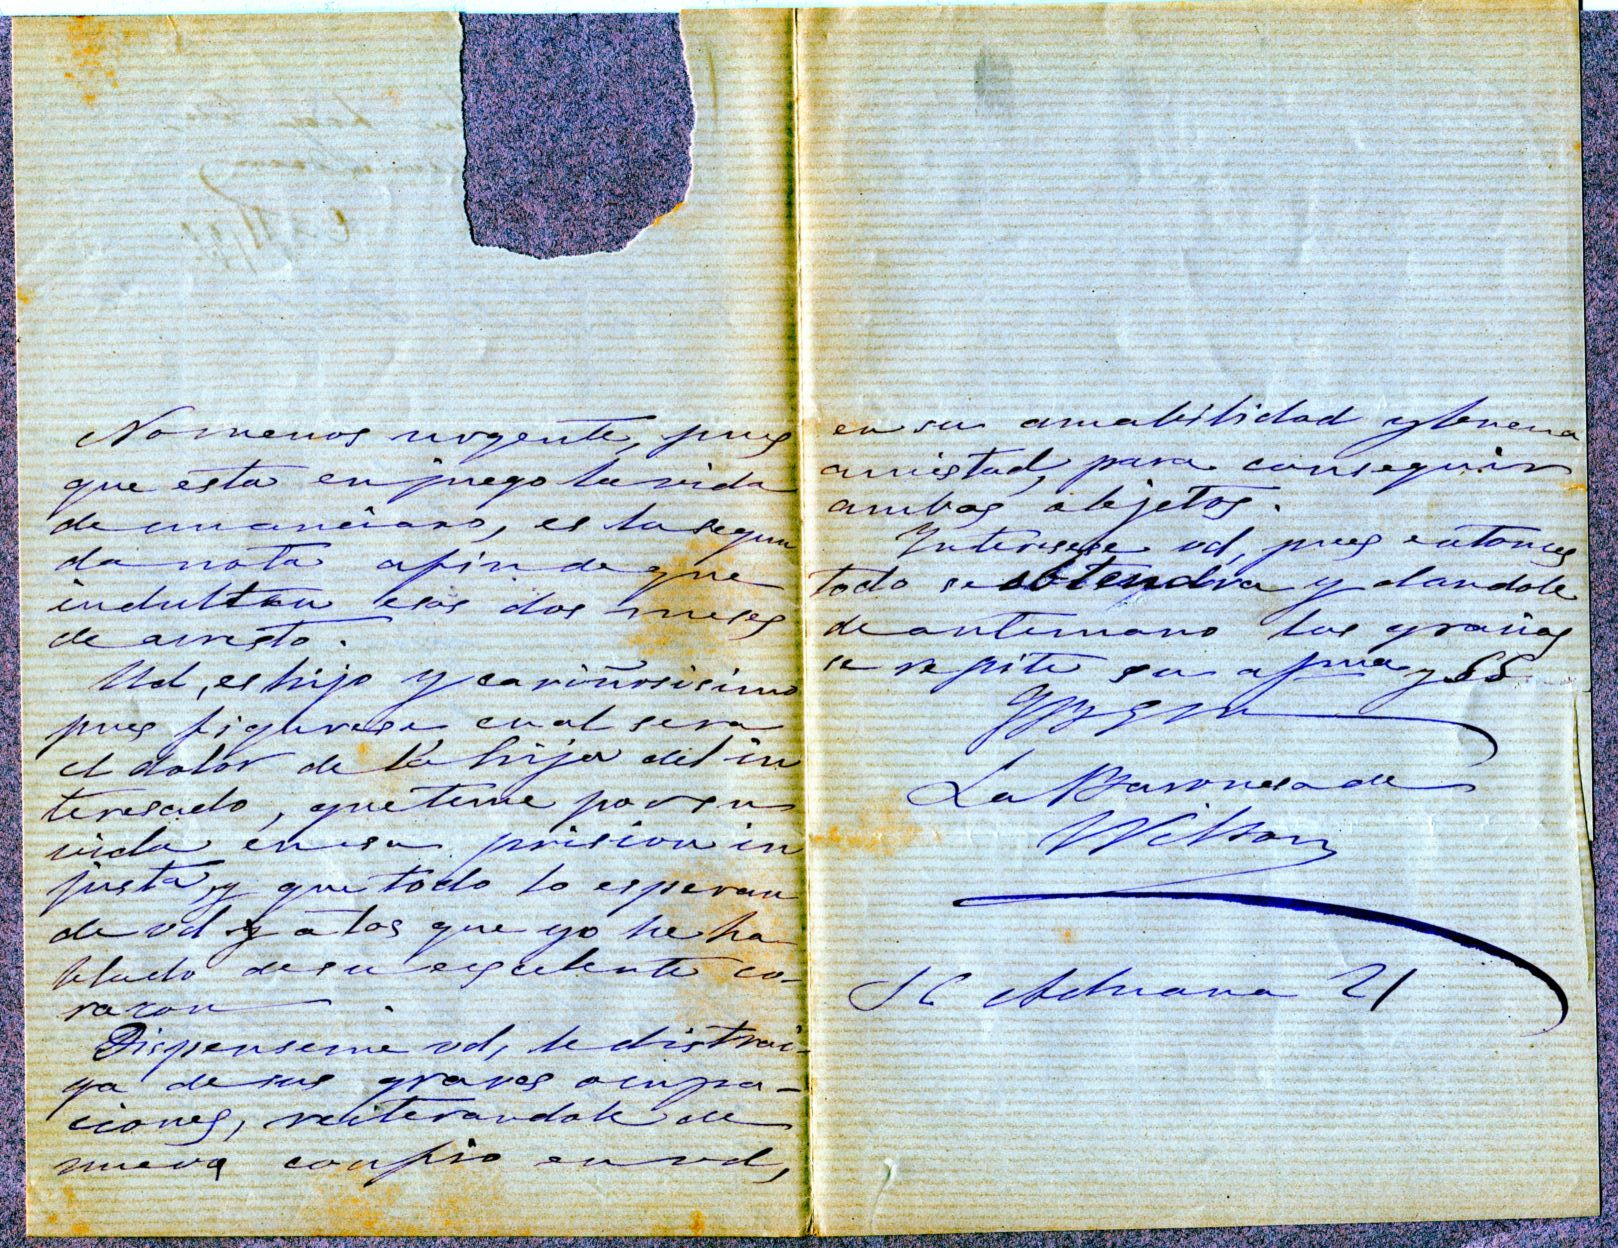 No menos urgente, pues
que esta en juego la vida
de un anciano, es la segun
da nota afin de que
indulten esos dos meses
de arresto.
Ud, es hijo y cariñosisimo
pues figurese cual sera
el dolor de la hija del in
teresado, que teme por su
vida en esa prision in
justa, y que todo lo esperan
de vd y a los que yo he ha
blado de su escelente co-
razon
Dispenseme vd, le distrai-
ga de sus graves ocupa-
ciones, reiterandole de
nuevo confio en vd,
en su amabilidad y buena
amistad, para conseguir
ambos objetos.
Interesese vd, pues entonces
todo se obtendra y dandole
de antemano las gracias
se repite su afma y SS
La Baronesa de
Wilson
SC Aduana 21